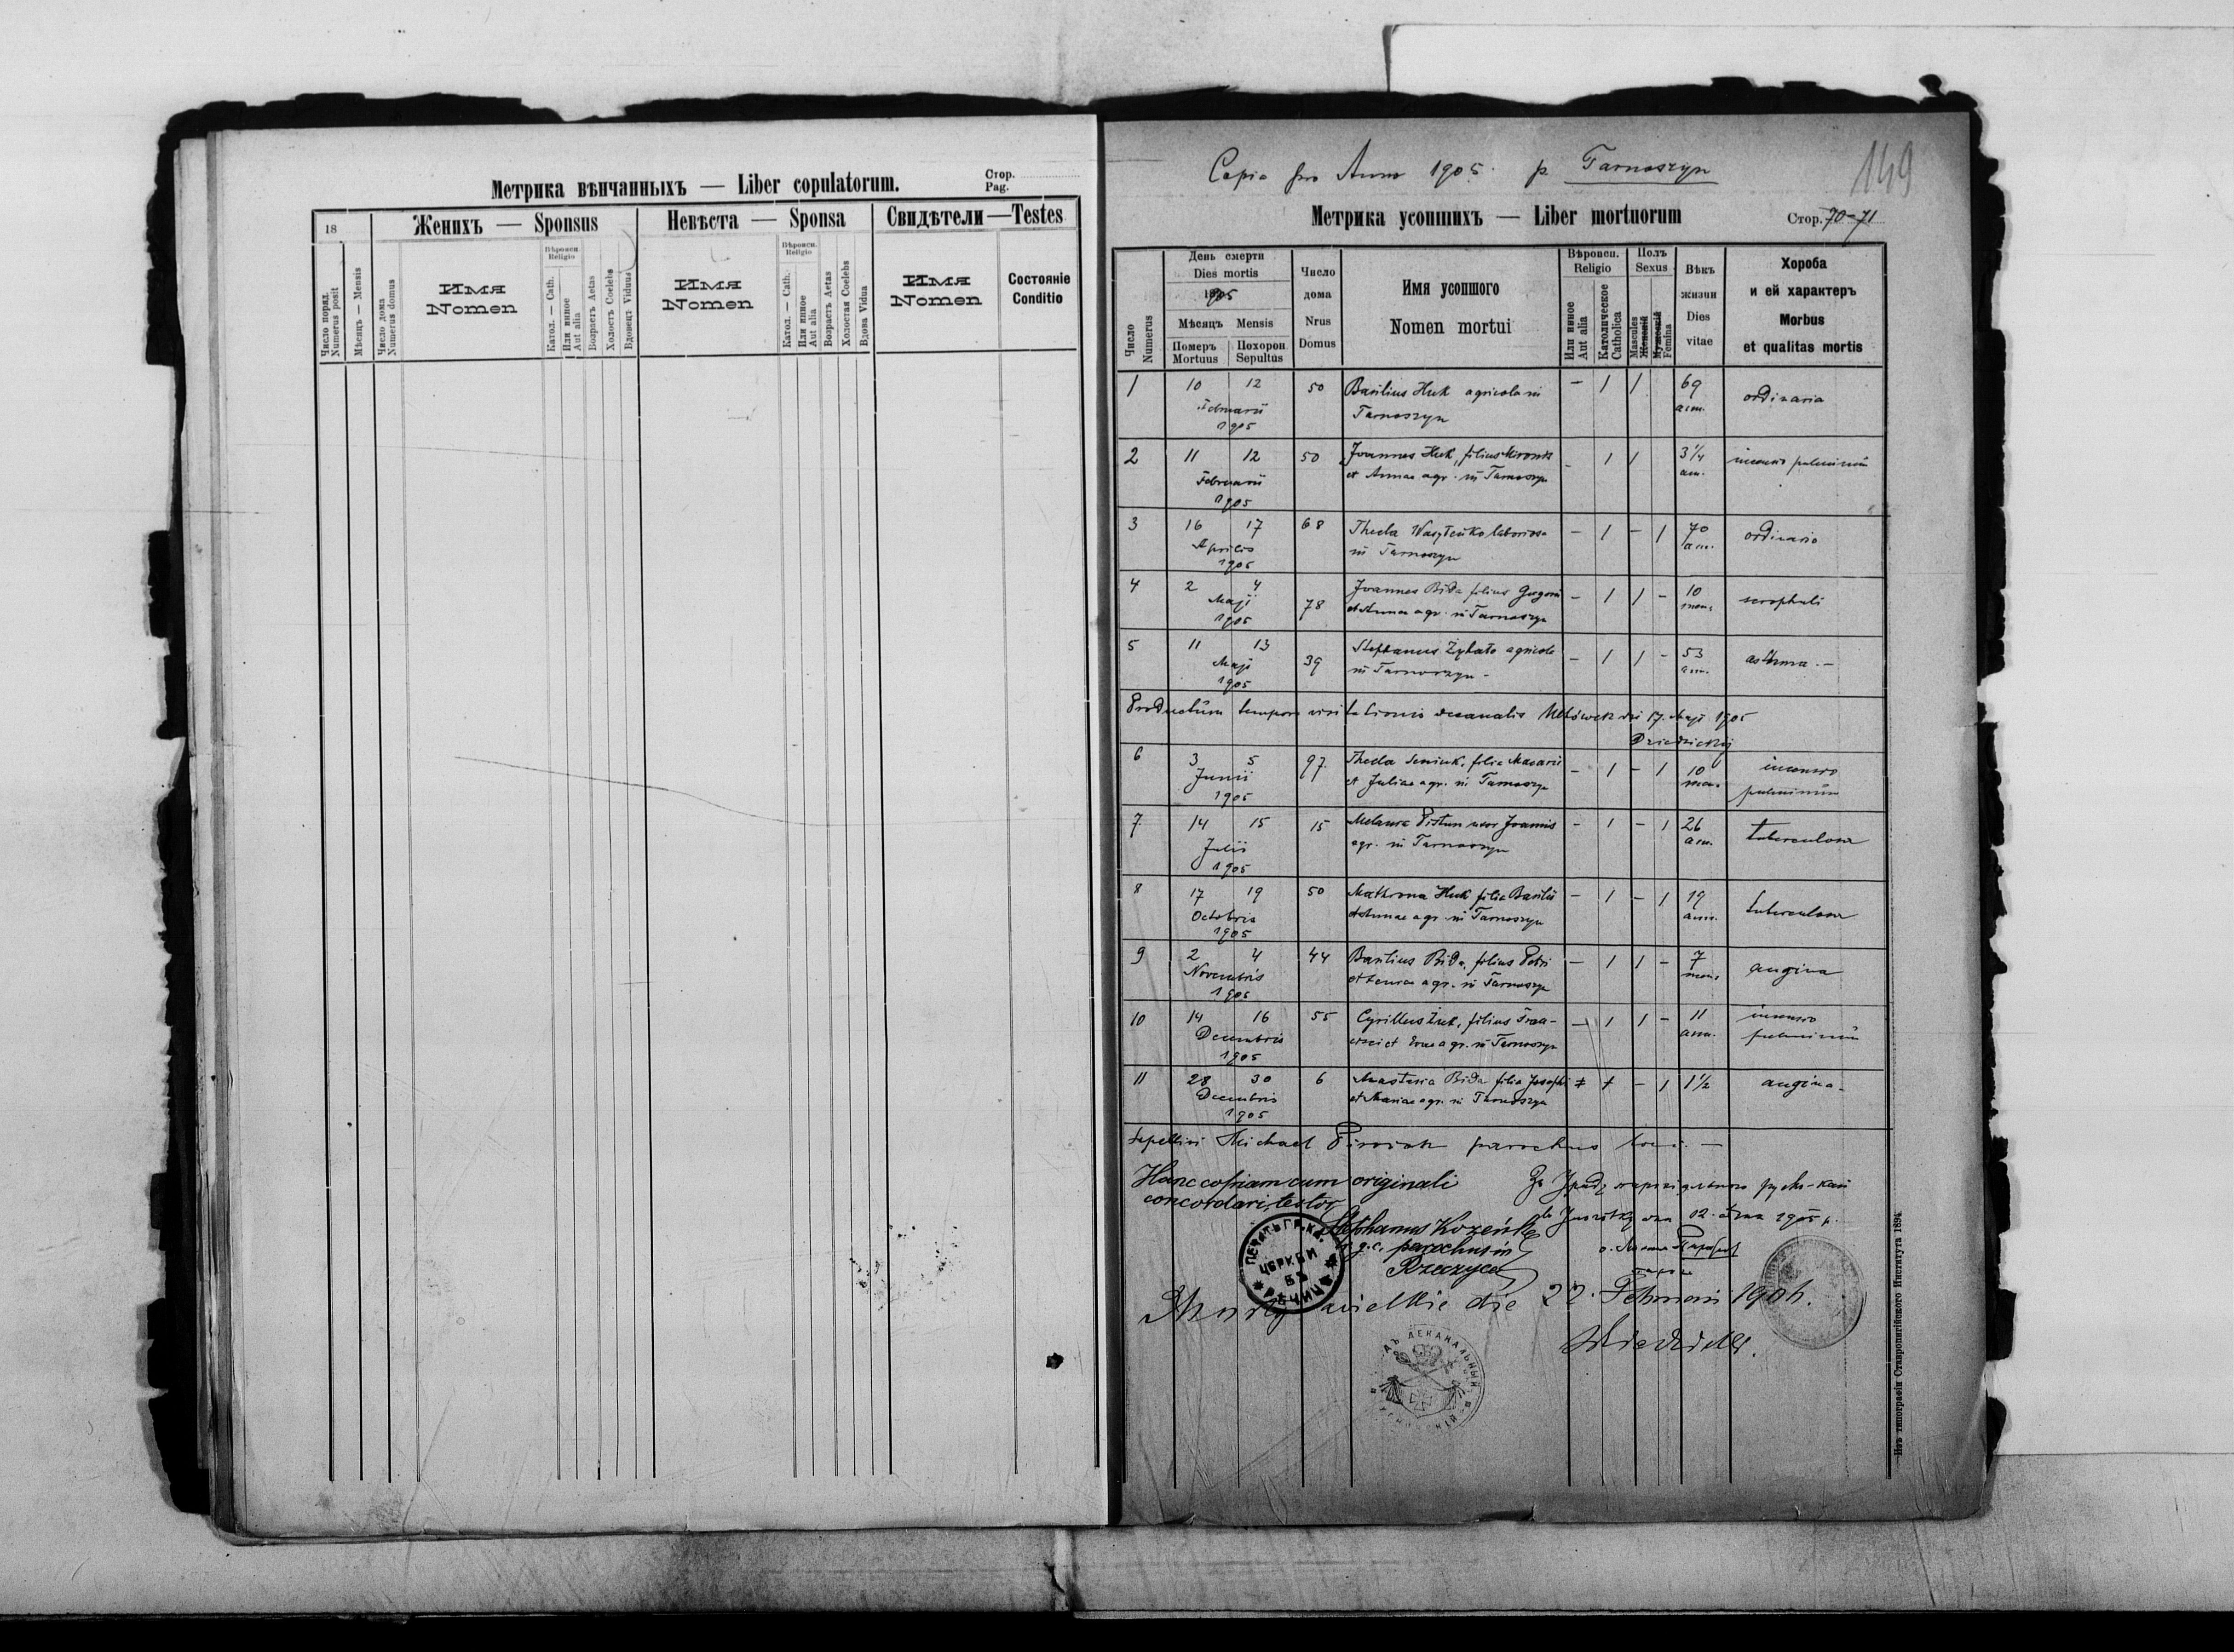 Метрика вѣнчанныхъ — Liber copulatorum.
Стор.
Pag.
18
Женихъ — Sponsus
Невѣста — Sponsa
Свидѣтели — Testes
Число поряд.
Numerus posit
Мѣсяцъ — Mensis
Число дома
Numerus domus
Имя
Nomen
Вѣроисп.
Religio
Катол. — Cath.
Или иное
Aut alia
Возрастъ Aetas
Холостъ Coelebs
Вдовецъ Viduus
Имя
Nomen
Вѣроисп.
Religio
Катол. — Cath.
Или иное
Aut alia
Возрастъ Aetas
Холостая Coelebs
Вдова Vidua
Имя
Nomen
Состояніе
Conditio
Copia pro Anno 1905. p. Tarnoszyn
149
Метрика усопшихъ — Liber mortuorum
Стор. 70-71
Число
Numerus
День смерти
Dies mortis
1905
Мѣсяцъ Mensis
Померъ Похорон
Mortuus Sepultus
Число
дома
Nrus
Domus
Имя усопшого
Nomen mortui
Вѣроисп.
Religio
Или иное
Aut alia
Католическое
Catholica
Полъ
Sexus
Mascules
Женскій
Мужескій
Femina
Вѣкъ
жизни
Dies
vitae
Хороба
и ей характеръ
Morbus
et qualitas mortis
1 10 12 50 Basilius Huk agricola in — 1 1 69 ordinaria
Februarii Tarnoszyn ann.
1905
2 11 12 50 Joannes Huk, filius Mironis - 1 1 3 1/4
Februarii et Annae agr. in Tarnoszyn ann.
1905
3 16 17 68 Thecla Wasyleńko laboriosa — 1 - 1 70 ordinaria
Aprilis in Tarnoszyn ann.
1905
4 2 4 78 Joannes Bida filius — 1 1 - 10 scrophuli
Maji et Annae agr. in Tarnoszyn mens
1905
5 11 13 39 Stephanus agricola — 1 1 - 53 asthma. —
Maji in Tarnoszyn - ann.
1905
Productum tempore visitationis decanalis Uhłówek dei 17. Maji 1905
Dziedzickij
6 3 5 97 Thecla Seniuk, filia Macarii — 1 - 1 10
Junii et Juliae agr. in Tarnoszyn mens
1905
7 14 15 15 Melania Pistun uxor Joannis - 1 - 1 26 tuberculosa
Julii agr. in Tarnoszyn ann.
1905
8 17 19 50 Mathrona Huk filia Basilii — 1 - 1 19 tuberculosa
Octobris et Annae agr. in Tarnoszyn ann.
1905
9 2 4 44 Basilius Bida, filius Petri — 1 1 - 7 angina
Novembris agr. in Tarnoszyn mens
1905
10 14 16 55 Cyrillus Żuk, filius Fran- — 1 1 - 11
Decembris cisci et Evae agr. in Tarnoszyn ann.
1905
11 28 30 6 Anastasia Bida filia Josephi - 1 1 1/2 angina -
Decembris et Mariae agr. in Tarnoszyn
1905
Sepelivi Michael parochus loci. —
Hanc copiam cum originali
concordari, testor
Stephanus Kozeńko
g. c. parochus in
Rzeczyca
ПЕЧАТЬ ГР. КАТ.
ЦЕРКВИ
ВЪ
РѢЧИЦѢ
wielkie die 22. Februarii 1906.
ДЕКАНАЛЬНЫЙ
Изъ типографіи Ставропигійского Института 1894.